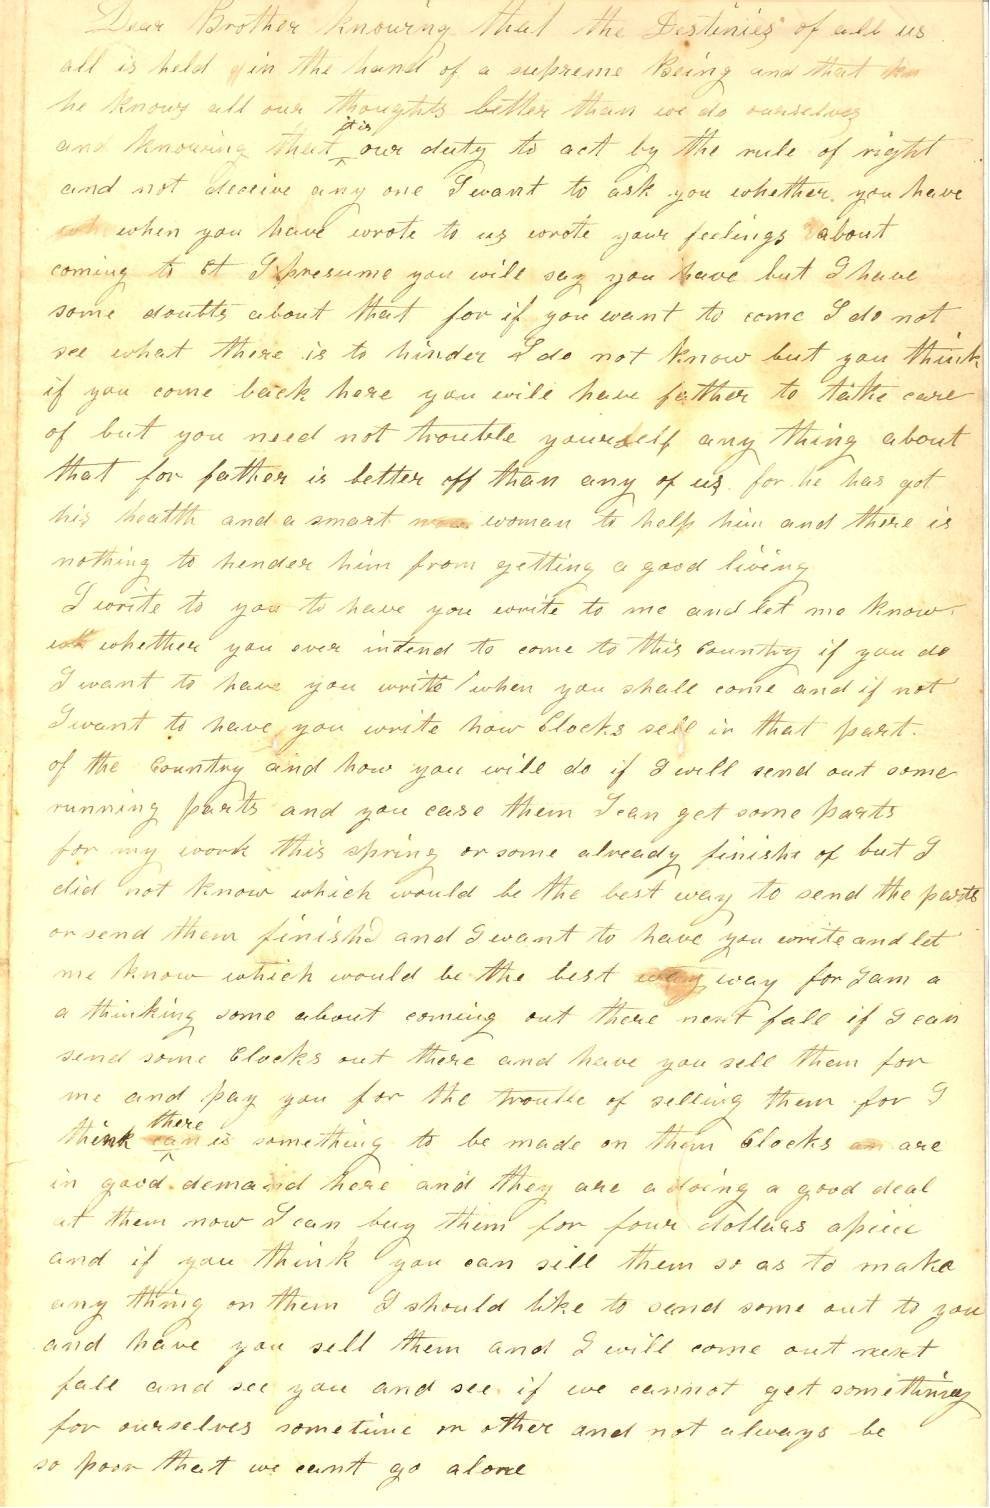 Dear Brother knowing that the Destinies of all us
all is held in the hand of a supreme Being and that
he knows all our thoughts better than we do ourselves
and knowing that it is our duty to act by the rule of right
and not deceive any one I want to ask you whether you have
when you have wrote to us wrote your feelings about
coming to Ct I presume you will say you have but I have
some doubts about that for if you want to come I do not
see what there is to hinder I do not know but you think
if you come back here you will have father to take care
of but you need not trouble yourself any thing about
that for father is better off than any of us for he has got
his health and a smart woman to help him and there is
nothing to hender him from getting a good living
I write to you to have you write to me and let me know
whether you ever intend to come to this Country if you do
I want to have you write when you shall come and if not
I want to have you write how Clocks sell in that part
of the Country and how you will do if I will send out some
running parts and you case them I can get some parts
for my work this spring or some already finishe of but I
did not know which would be the best way to send the parts
or send them finishd and I want to have you write and let
me know which would be the best way for I am a
a thinking some about coming out there next fall if I can
send some Clocks out there and have you sell them for
me and pay you for the trouble of selling them for I
think there is something to be made on them Clocks are
in good demand here and they are a doing a good deal
at them now I can buy them for four dollars apiece
and if you think you can sill them so as to make
any thing on them I should like to send some out to you
and have you sell them and I will come out next
fall and see you and see if we cannot get something
for ourselves sometime or other and not always be
so poor that we cant go alone